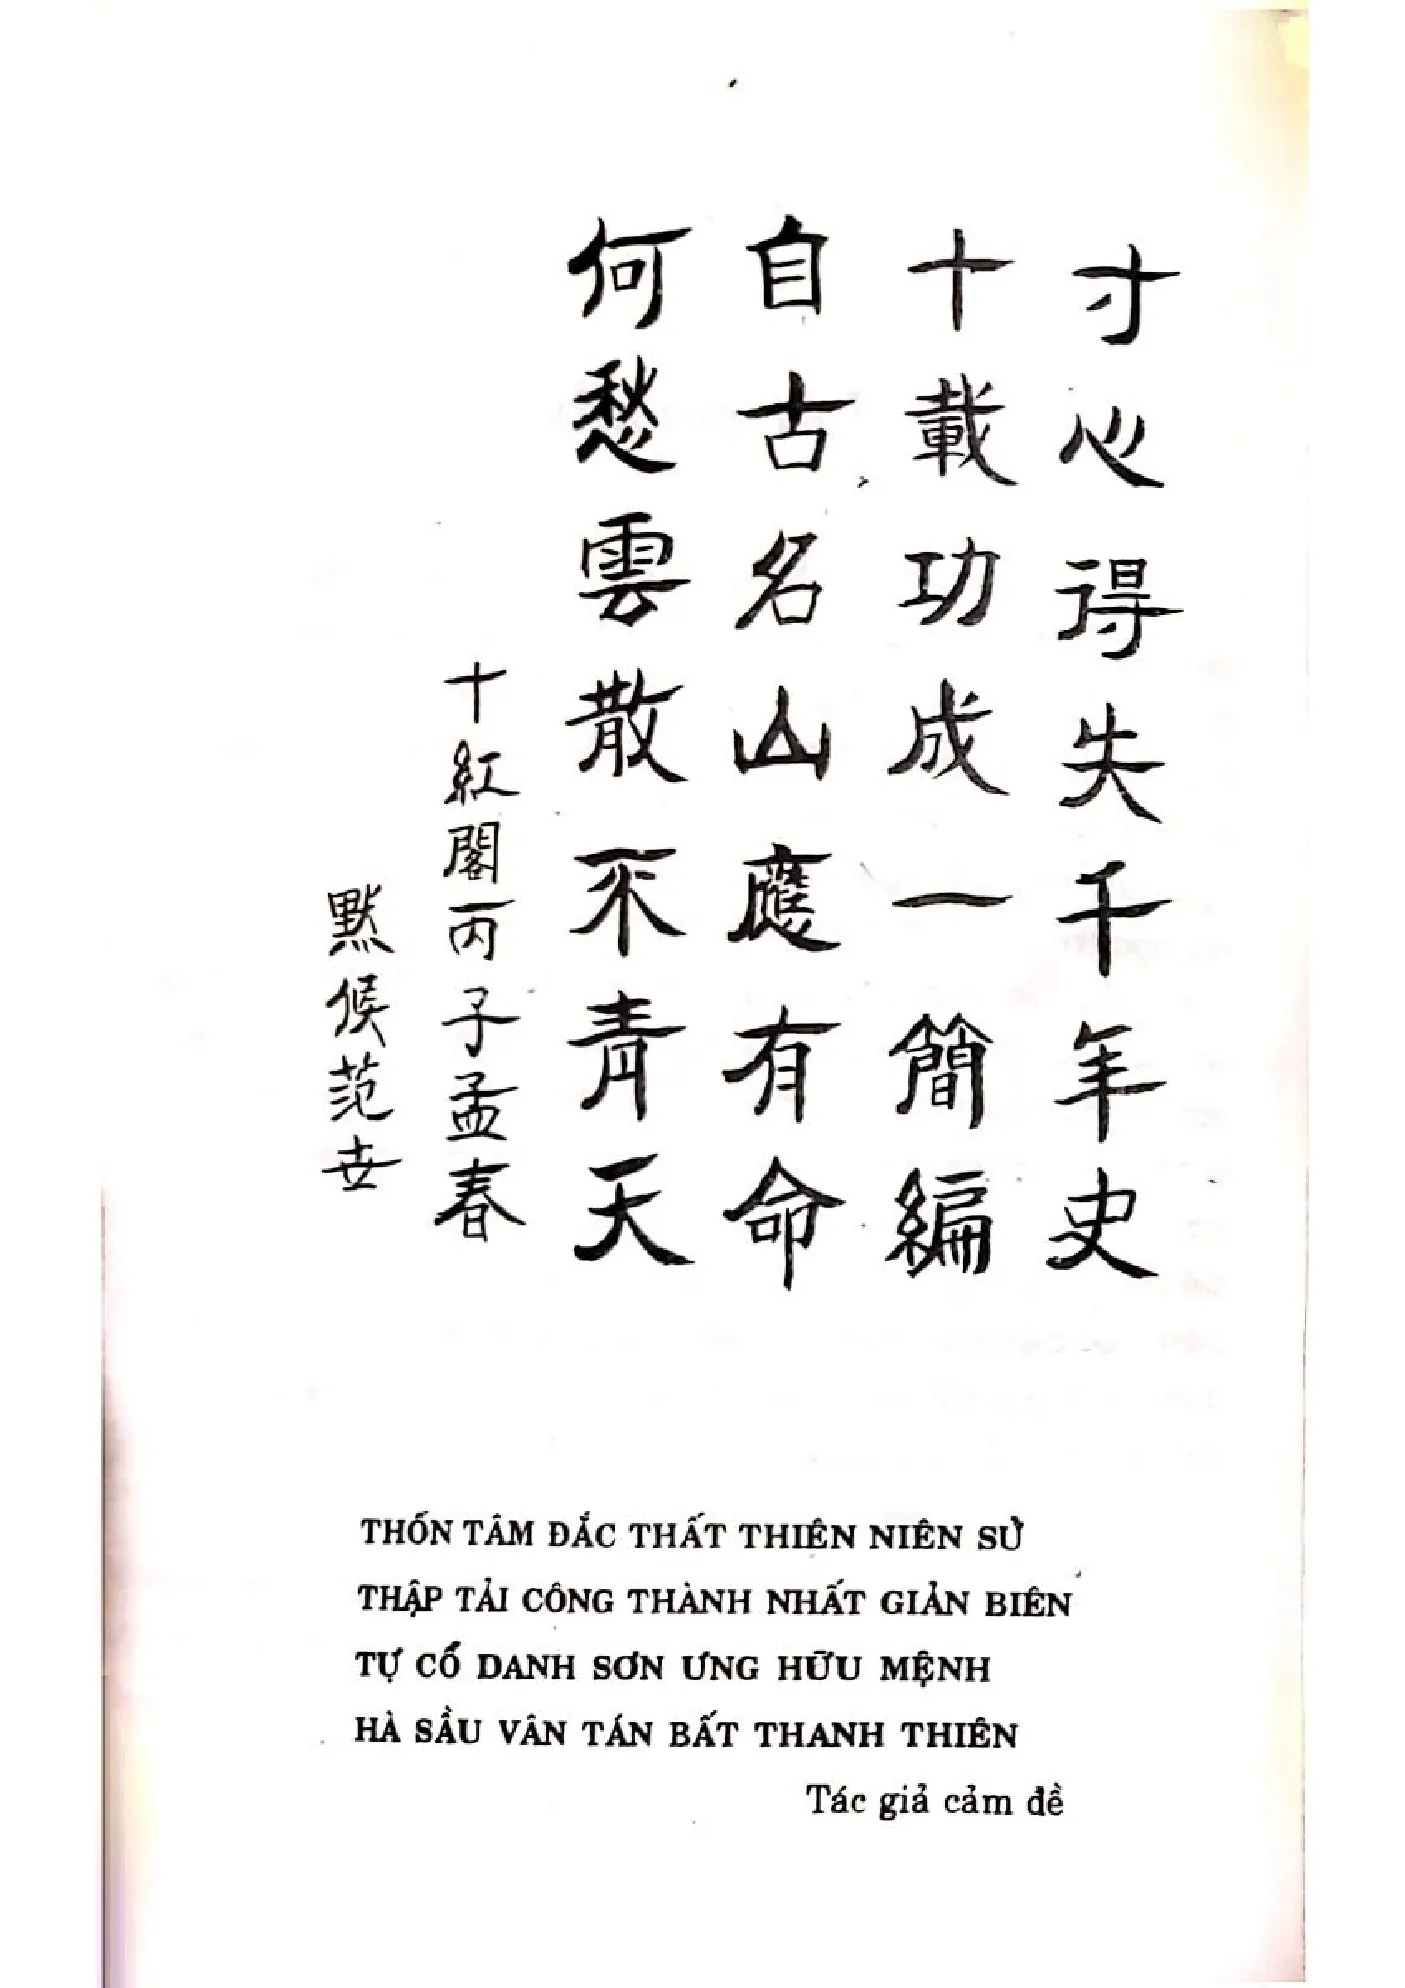 寸心得失千年史
十載功成一簡編
自古名山應有命
何愁雲散不青天
十紅閣丙子孟春
黙候范世
THỐN TÂM ĐẮC THẤT THIÊN NIÊN SỬ
THẬP TẢI CÔNG THÀNH NHẤT GIẢN BIÊN
TỰ CỔ DANH SƠN ƯNG HỮU MỆNH
HÀ SẦU VÂN TÁN BẤT THANH THIÊN
Tác giả cảm đề